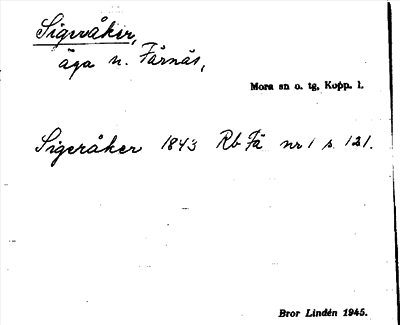 Sigeråker,
äga n. Färnäs,
Mora sn o. tg, Kopp. l.
Sigeråker 1843 Rb Fä nr 1 s. 121.
Bror Lindén 1945.